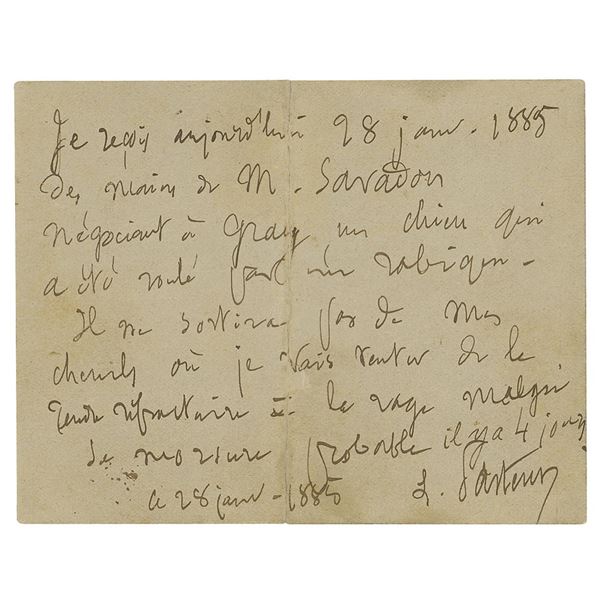 Je reçois aujourd'hui 28 janv. 1885
des mains de M. Savadon
négociant à Gray un chien qui
a été roulé par un rabique.
Il ne sortira pas de mes
chenils où je vais tenter de le
rendre réfractaire à la rage malgré
sa morsure probable il y a 4 jours
ce 28 janv. 1885 L. Pasteur